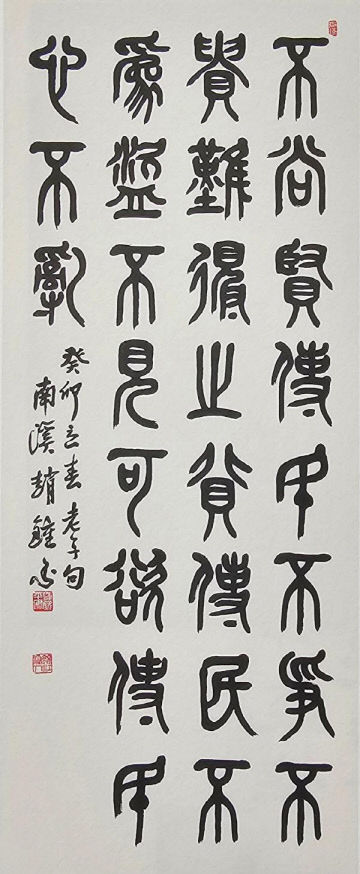 不尚賢使民不爭不
貴難得之貨使民不
爲盜不見可欲使民
心不亂
癸卯立春老子句
南溪趙